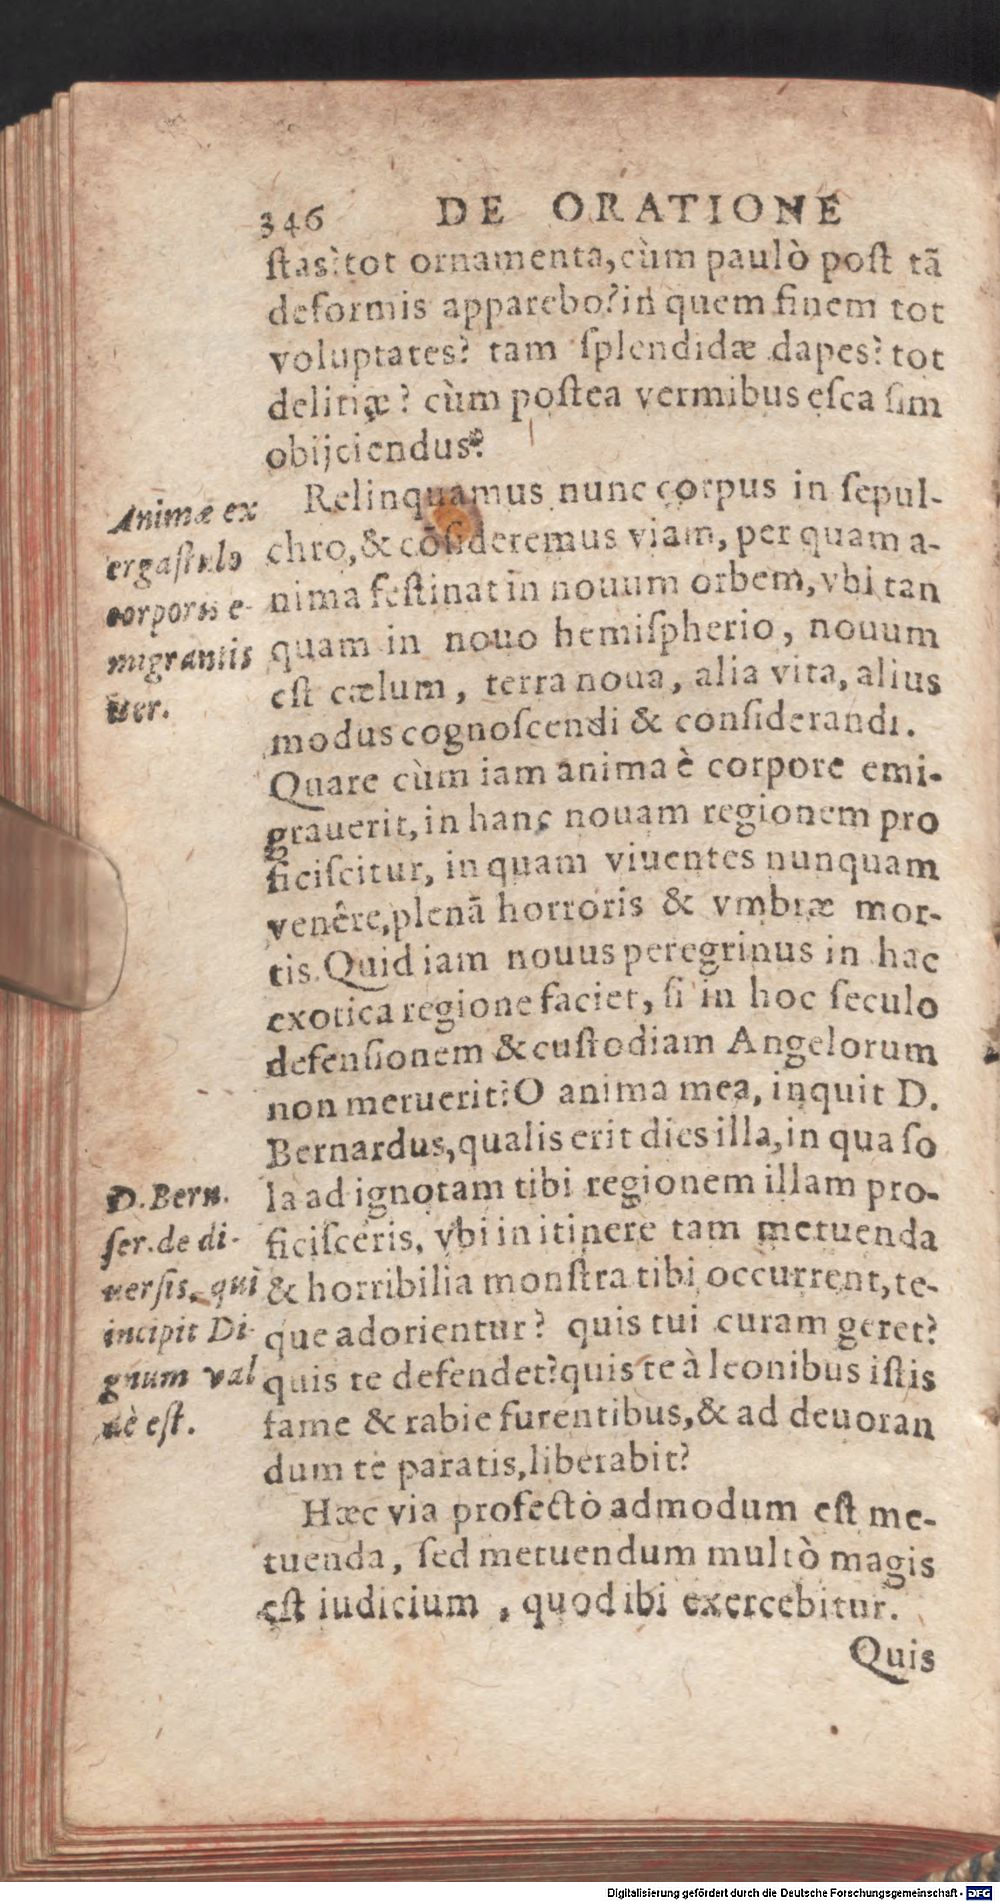 346 DE ORATIONE
ſtas? tot ornamenta, cùm paulò poſt tā
deformis apparebo? in quem finem tot
voluptates? tam ſplendidæ dapes? tot
delitiæ? cùm poſtea vermibus eſca ſim
obijciendus?
Relinquamus nunc corpus in ſepul-
chro, & cōſideremus viam, per quam a-
nima feſtinat in nouum orbem, vbi tan
quam in nouo hemiſpherio, nouum
eſt cælum, terra noua, alia vita, alius
modus cognoſcendi & conſiderandi.
Quare cùm iam anima è corpore emi-
grauerit, in hanc nouam regionem pro
ficiſcitur, in quam viuentes nunquam
venêre, plenā horroris & vmbræ mor-
tis. Quid iam nouus peregrinus in hac
exotica regione faciet, ſi in hoc ſeculo
defenſionem & cuſtodiam Angelorum
non meruerit? O anima mea, inquit D.
Bernardus, qualis erit dies illa, in qua ſo
la ad ignotam tibi regionem illam pro-
ficiſceris, vbi in itinere tam metuenda
& horribilia monſtra tibi occurrent, te-
que adorientur? quis tui curam geret?
quis te defendet? quis te à leonibus iſtis
fame & rabie furentibus, & ad deuoran
dum te paratis, liberabit?
Hæc via profectò admodum eſt me-
tuenda, ſed metuendum multò magis
eſt iudicium, quod ibi exercebitur.
Quis
Animæ ex
ergaſtulo
corporis e-
migrantis
iter.
D. Bern.
ſer. de di-
uerſis, qui
incipit Di-
gnum val
dè eſt.
Digitalisierung gefördert durch die Deutsche Forschungsgemeinschaft - DFG